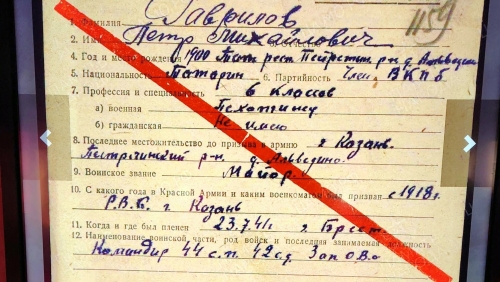 1. Фамилия Гаврилов
1159
2. Имя Петр Михайлович
4. Год и место рождения 1900 Тат. рест. Пестреч. р-н д. Альведино
5. Национальность Татарин 6. Партийность Член ВКПб
7. Профессия и специальность 6 классов
а) военная Пехотинец
б) гражданская Не имею
8. Последнее местожительство до призыва в армию г Казань.
Пестречинский р-н д. Альведино.
9. Воинское звание Майор.
10. С какого года в Красной Армии и каким военкоматом был призван с 1918 г.
Р.В.К. г Казань
11. Когда и где был пленен 23.7.41 г. г Брест.
12. Наименование воинской части, род войск и последняя занимаемая должность
Командир 44 с.п. 42 с.д. ЗапОВо